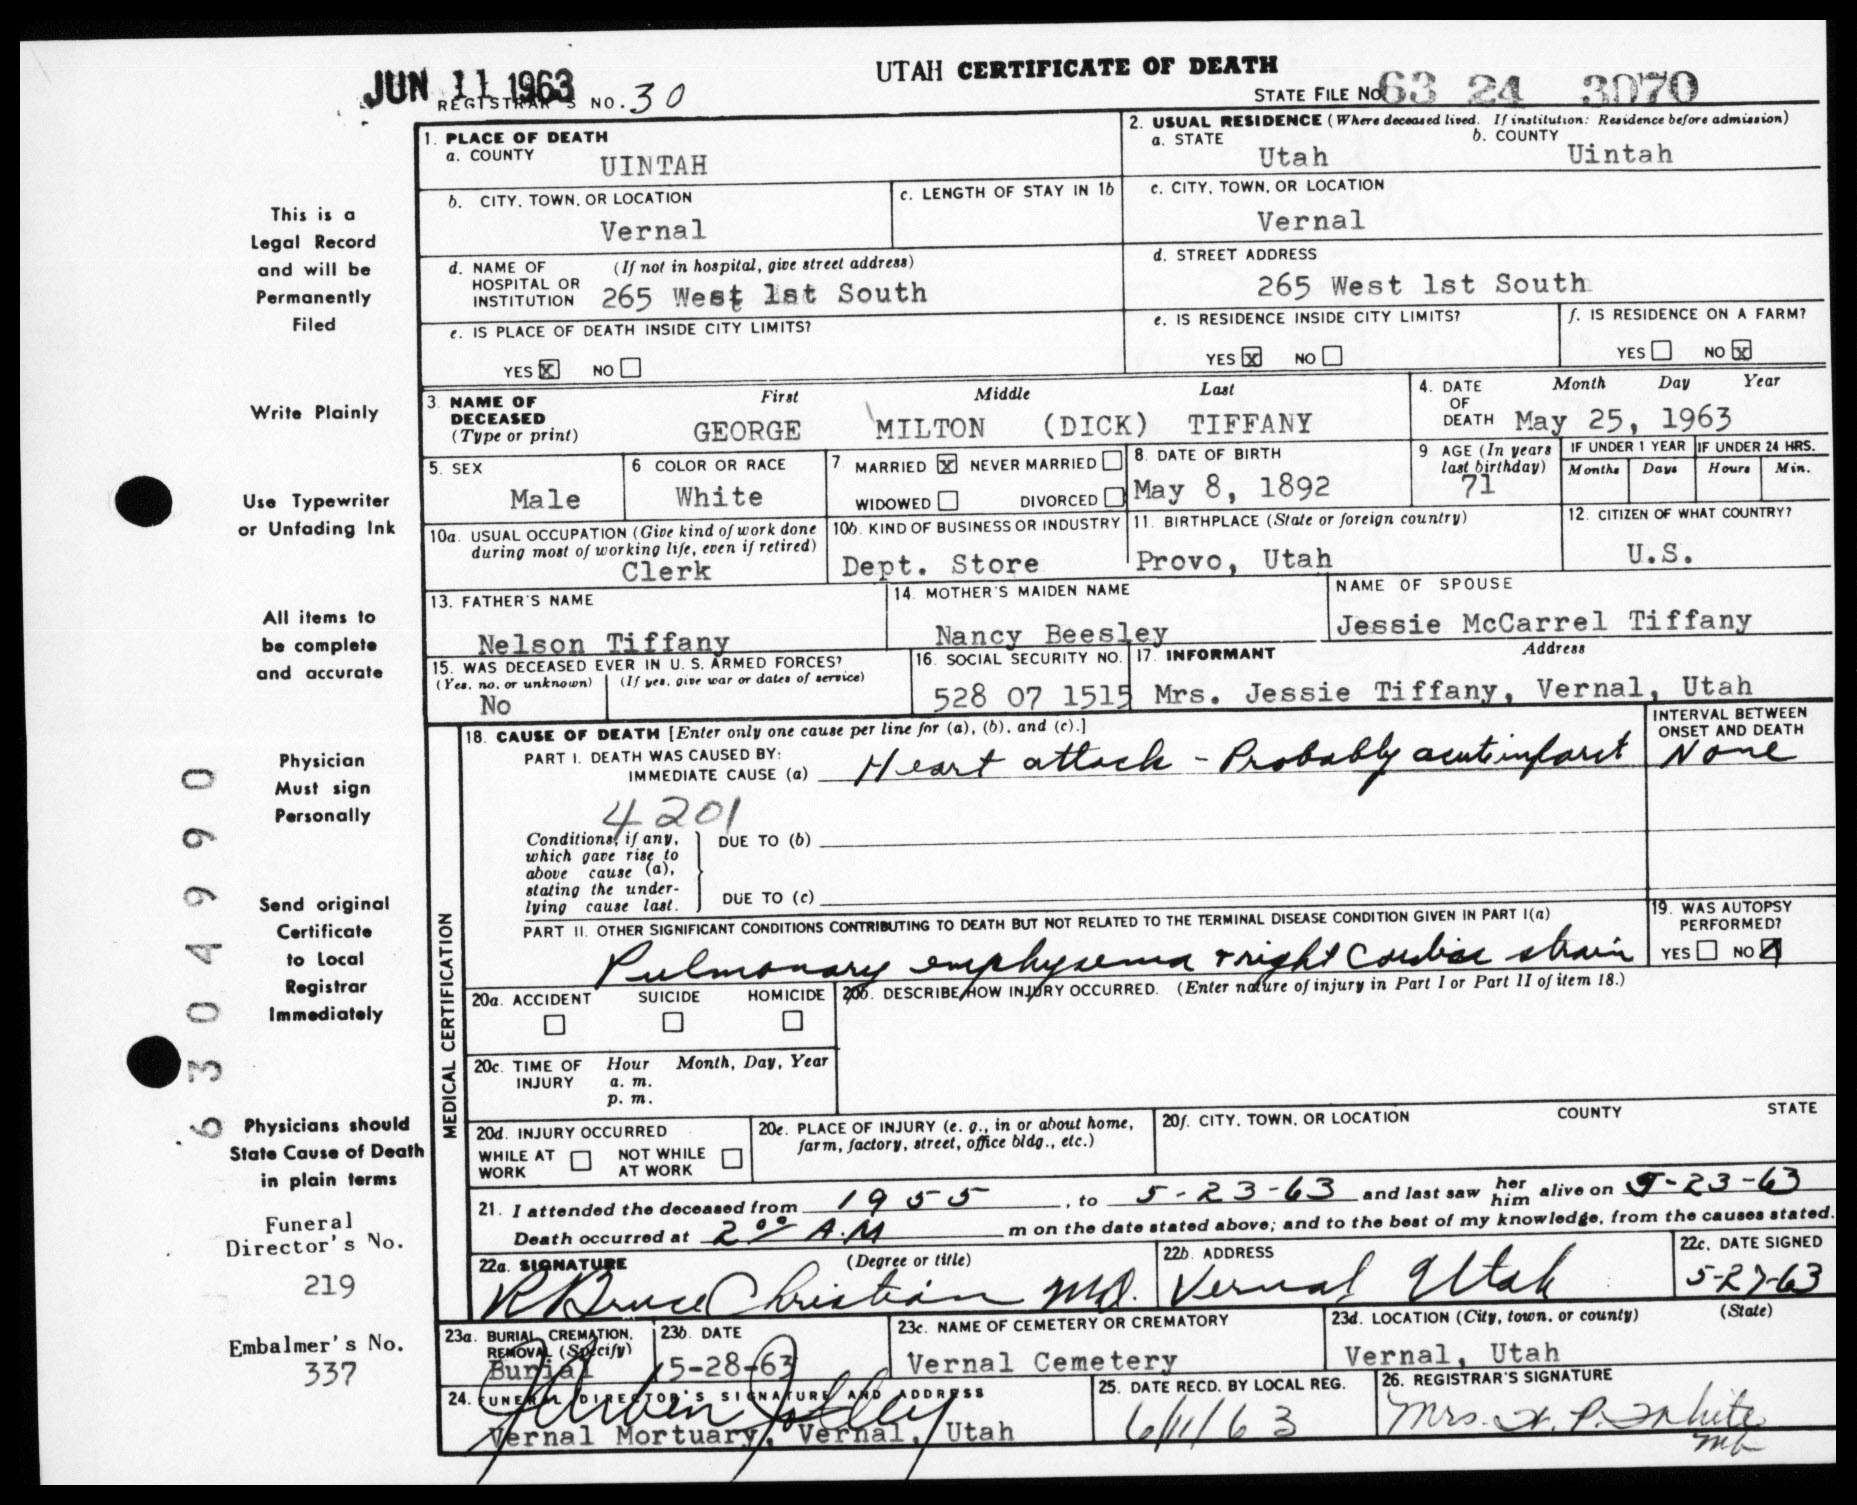 UTAH CERTIFICATE OF DEATH
JUN 11 1963
REGISTRAR'S NO. 30
STATE FILE NO. 63 24 3070
This is a
Legal Record
and will be
Permanently
Filed
Write Plainly
Use Typewriter
or Unfading Ink
All items to
be complete
and accurate
Physician
Must sign
Personally
Send original
Certificate
to Local
Registrar
Immediately
Physicians should
State Cause of Death
in plain terms
Funeral
Director's No.
219
Embalmer's No.
337
6304990
1. PLACE OF DEATH
a. COUNTY
UINTAH
2. USUAL RESIDENCE (Where deceased lived. If institution: Residence before admission)
a. STATE
Utah
b. COUNTY
Uintah
b. CITY, TOWN, OR LOCATION
Vernal
c. LENGTH OF STAY IN 1b
c. CITY, TOWN, OR LOCATION
Vernal
d. NAME OF HOSPITAL OR INSTITUTION
(If not in hospital, give street address)
265 West 1st South
d. STREET ADDRESS
265 West 1st South
e. IS PLACE OF DEATH INSIDE CITY LIMITS?
YES X NO
e. IS RESIDENCE INSIDE CITY LIMITS?
YES X NO
f. IS RESIDENCE ON A FARM?
YES NO X
3. NAME OF DECEASED
(Type or print)
First Middle Last
GEORGE MILTON (DICK) TIFFANY
4. DATE OF DEATH
Month Day Year
May 25, 1963
5. SEX
Male
6 COLOR OR RACE
White
7. MARRIED X NEVER MARRIED
WIDOWED DIVORCED
8. DATE OF BIRTH
May 8, 1892
9 AGE (In years last birthday)
71
IF UNDER 1 YEAR
Months Days
IF UNDER 24 HRS.
Hours Min.
10a. USUAL OCCUPATION (Give kind of work done
during most of working life, even if retired)
Clerk
10b. KIND OF BUSINESS OR INDUSTRY
Dept. Store
11. BIRTHPLACE (State or foreign country)
Provo, Utah
12. CITIZEN OF WHAT COUNTRY?
U.S.
13. FATHER'S NAME
Nelson Tiffany
14. MOTHER'S MAIDEN NAME
Nancy Beesley
NAME OF SPOUSE
Jessie McCarrel Tiffany
15. WAS DECEASED EVER IN U. S. ARMED FORCES?
(Yes, no, or unknown) (If yes, give war or dates of service)
No
16. SOCIAL SECURITY NO.
528 07 1515
17. INFORMANT Address
Mrs. Jessie Tiffany, Vernal, Utah
MEDICAL CERTIFICATION
18. CAUSE OF DEATH [Enter only one cause per line for (a), (b), and (c).]
PART I. DEATH WAS CAUSED BY:
IMMEDIATE CAUSE (a) Heart attack - Probably acute infarct
INTERVAL BETWEEN
ONSET AND DEATH
None
4201
Conditions, if any,
which gave rise to
above cause (a),
stating the under-
lying cause last.
DUE TO (b)
DUE TO (c)
PART II. OTHER SIGNIFICANT CONDITIONS CONTRIBUTING TO DEATH BUT NOT RELATED TO THE TERMINAL DISEASE CONDITION GIVEN IN PART I(a)
Pulmonary emphysema + right cardiac strain
19. WAS AUTOPSY
PERFORMED?
YES NO
20a. ACCIDENT SUICIDE HOMICIDE
20b. DESCRIBE HOW INJURY OCCURRED. (Enter nature of injury in Part I or Part II of item 18.)
20c. TIME OF INJURY
Hour Month, Day, Year
a. m.
p. m.
20d. INJURY OCCURRED
WHILE AT WORK NOT WHILE AT WORK
20e. PLACE OF INJURY (e. g., in or about home,
farm, factory, street, office bldg., etc.)
20f. CITY, TOWN, OR LOCATION COUNTY STATE
21. I attended the deceased from 1955, to 5-23-63 and last saw her him alive on 5-23-63
Death occurred at 2:00 A.M m on the date stated above; and to the best of my knowledge, from the causes stated.
22a. SIGNATURE (Degree or title)
R Bruce Christian MD.
22b. ADDRESS
Vernal Utah
22c. DATE SIGNED
5-27-63
23a. BURIAL, CREMATION,
REMOVAL (Specify)
Burial
23b. DATE
5-28-63
23c. NAME OF CEMETERY OR CREMATORY
Vernal Cemetery
23d. LOCATION (City, town, or county) (State)
Vernal, Utah
24. FUNERAL DIRECTOR'S SIGNATURE AND ADDRESS
Vernal Mortuary, Vernal, Utah
25. DATE RECD. BY LOCAL REG.
6/11/63
26. REGISTRAR'S SIGNATURE
Mrs. H. P. White